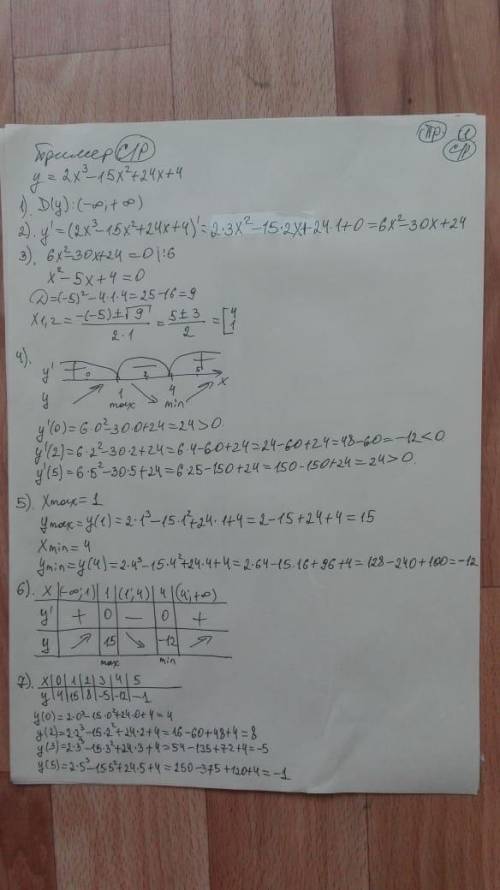 Пример С/Р
ПР 1
СР
y = 2x³-15x²+24x+4
1). D(y): (-∞, +∞)
2). y' = (2x³-15x²+24x+4)' = 2·3x²-15·2x+24·1+0 = 6x²-30x+24
3). 6x²-30x+24 = 0 |:6
x²-5x+4 = 0
D = (-5)²-4·1·4 = 25-16 = 9
x1,2 = (-(-5)±√9)/(2·1) = (5±3)/2 = [4 1
4). y' + 0 − 2 + 5
1 4 x
y max min
y'(0) = 6·0²-30·0+24 = 24 > 0
y'(2) = 6·2²-30·2+24 = 6·4-60+24 = 24-60+24 = 48-60 = -12 < 0
y'(5) = 6·5²-30·5+24 = 6·25-150+24 = 150-150+24 = 24 > 0
5). Xmax = 1
ymax = y(1) = 2·1³-15·1²+24·1+4 = 2-15+24+4 = 15
Xmin = 4
ymin = y(4) = 2·4³-15·4²+24·4+4 = 2·64-15·16+96+4 = 128-240+100 = -12
6). x | (-∞; 1) | 1 | (1; 4) | 4 | (4; +∞)
y' | + | 0 | − | 0 | +
y | ↗ | 15 | ↘ | -12 | ↗
max min
7). x | 0 | 1 | 2 | 3 | 4 | 5
y | 4 | 15 | 8 | -5 | -12 | -1
y(0) = 2·0³-15·0²+24·0+4 = 4
y(2) = 2·2³-15·2²+24·2+4 = 16-60+48+4 = 8
y(3) = 2·3³-15·3²+24·3+4 = 54-135+72+4 = -5
y(5) = 2·5³-15·5²+24·5+4 = 250-375+120+4 = -1